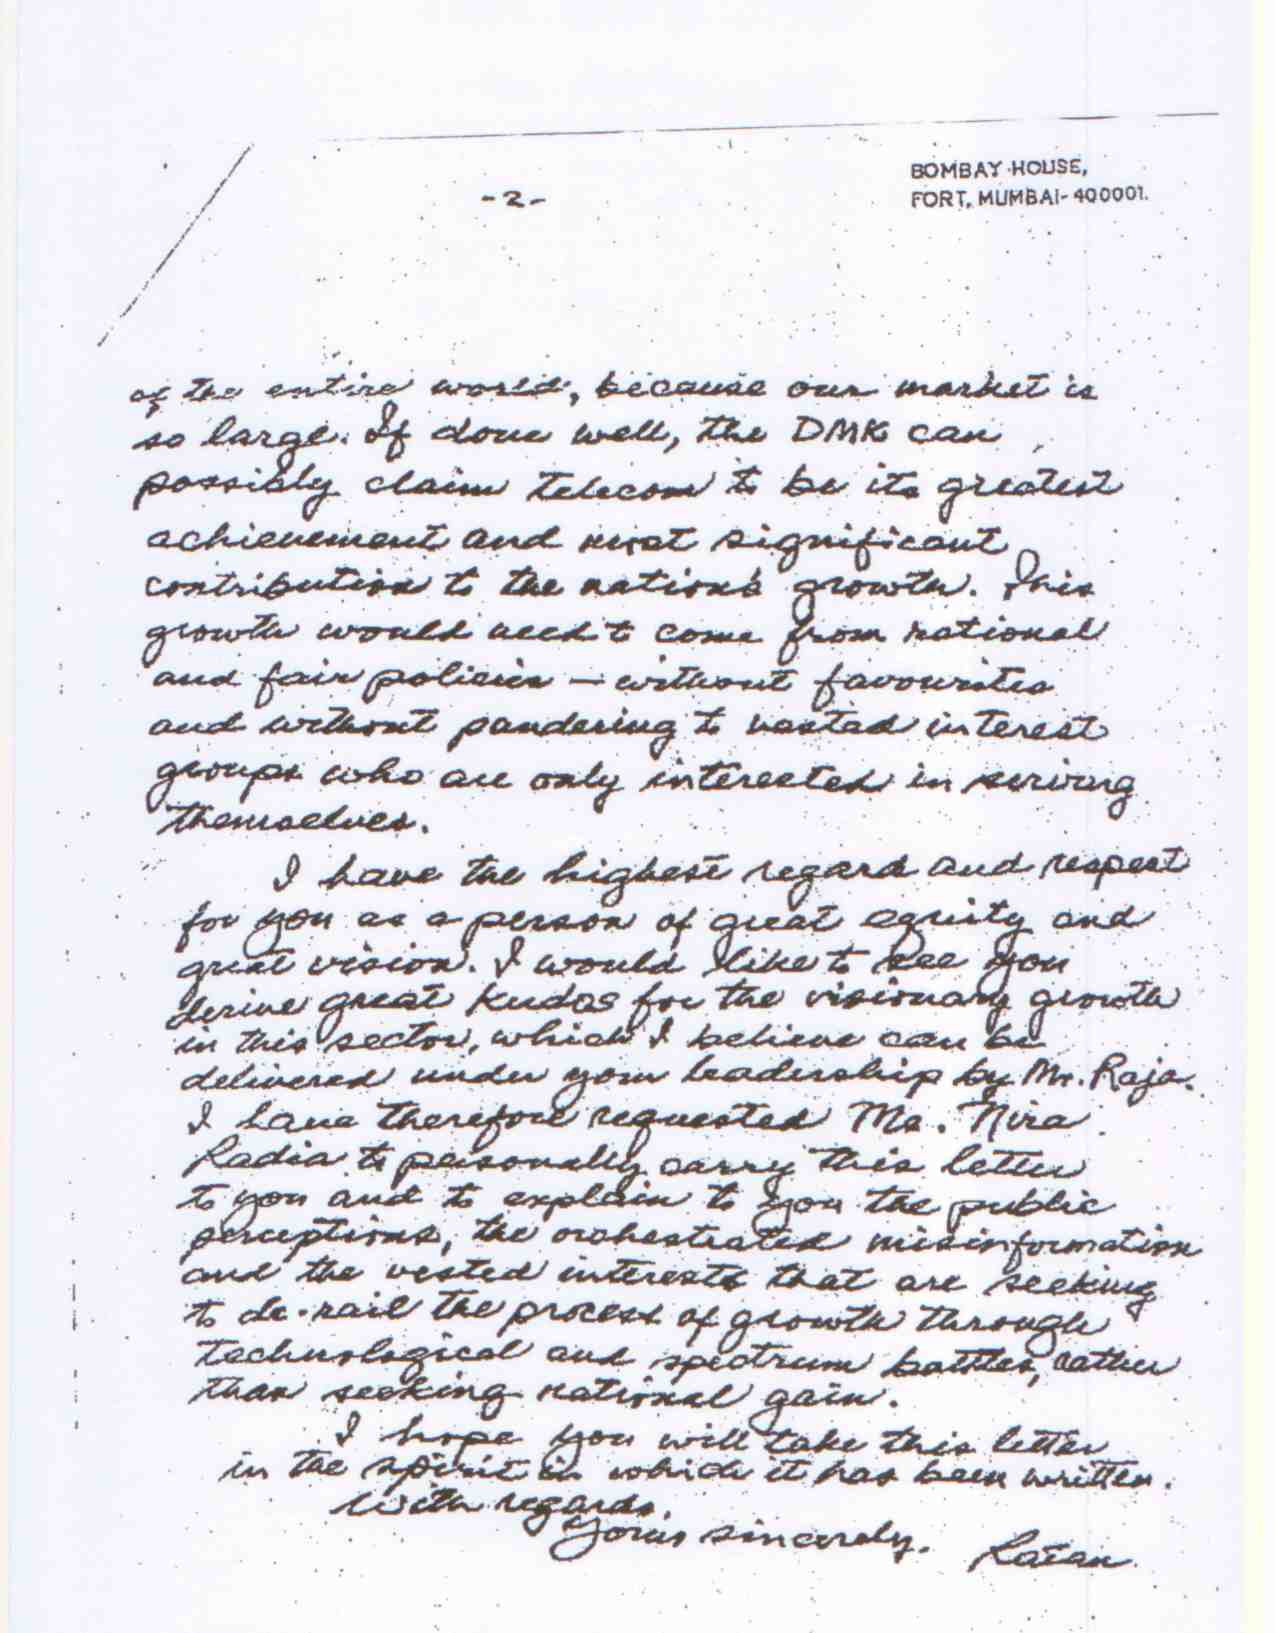 BOMBAY HOUSE,
FORT, MUMBAI-400001.
-2-
of the entire world, because our market is
so large. If done well, the DMK can
possibly claim telecom to be its greatest
achievement and most significant
contribution to the nation's growth. This
growth would need to come from rational
and fair policies — without favourites
and without pandering to vested interest
groups who are only interested in serving
themselves.
I have the highest regard and respect
for you as a person of great equity and
great vision. I would like to see you
derive great kudos for the visionary growth
in this sector, which I believe can be
delivered under your leadership by Mr. Raja.
I have therefore requested Ms. Nira
Radia to personally carry this letter
to you and to explain to you the public
perceptions, the orchestrated misinformation
and the vested interests that are seeking
to de-rail the process of growth through
technological and spectrum battles, rather
than seeking national gain.
I hope you will take this letter
in the spirit in which it has been written.
With regards.
Yours sincerely.
Ratan